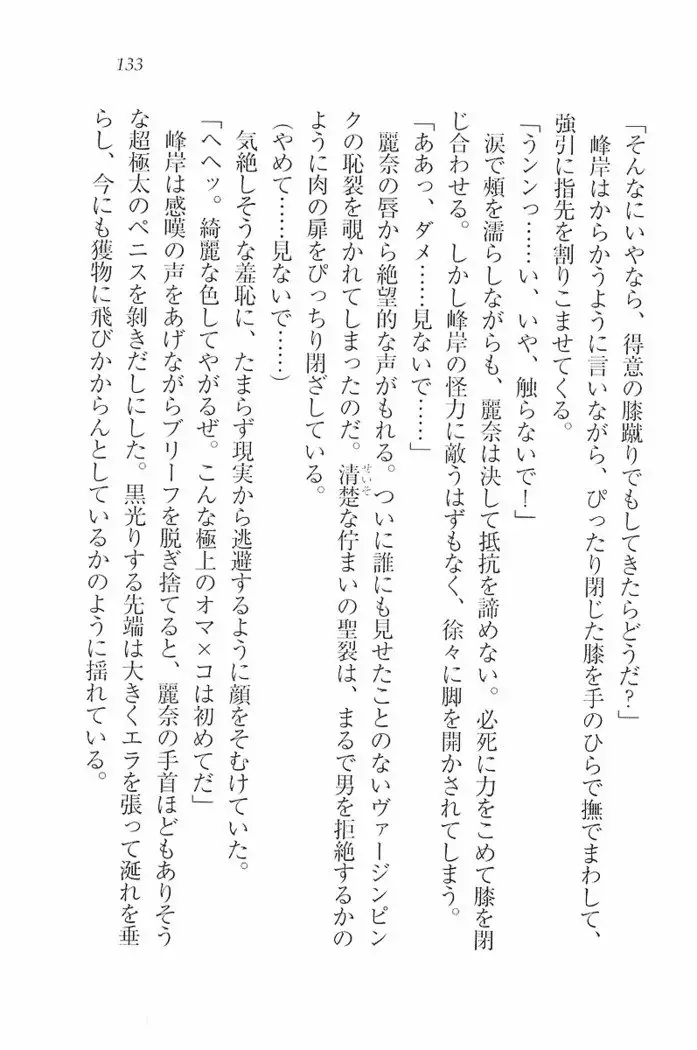 133
「そんなにいやなら、得意の膝蹴りでもしてきたらどうだ？」
峰岸はからかうように言いながら、ぴったり閉じた膝を手のひらで撫でまわして、
強引に指先を割りこませてくる。
「うンンっ……い、いや、触らないで！」
涙で頰を濡らしながらも、麗奈は決して抵抗を諦めない。必死に力をこめて膝を閉
じ合わせる。しかし峰岸の怪力に敵うはずもなく、徐々に脚を開かされてしまう。
「ああっ、ダメ……見ないで……」
麗奈の唇から絶望的な声がもれる。ついに誰にも見せたことのないヴァージンピン
クの恥裂を覗かれてしまったのだ。清楚な佇まいの聖裂は、まるで男を拒絶するかの
せいそ
ように肉の扉をぴっちり閉ざしている。
（やめて……見ないで……）
気絶しそうな羞恥に、たまらず現実から逃避するように顔をそむけていた。
「へへッ。綺麗な色してやがるぜ。こんな極上のオマ×コは初めてだ」
峰岸は感嘆の声をあげながらブリーフを脱ぎ捨てると、麗奈の手首ほどもありそう
な超極太のペニスを剝きだしにした。黒光りする先端は大きくエラを張って涎れを垂
らし、今にも獲物に飛びかからんとしているかのように揺れている。